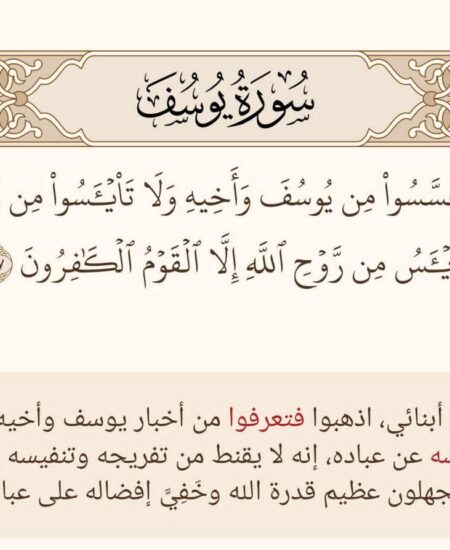 سُورَةُ يُوسُفَ
مِن يُوسُفَ وَأَخِيهِ وَلَا تَا۟يْـَٔسُوا۟ مِن
مِن رَّوْحِ ٱللَّهِ إِلَّا ٱلْقَوْمُ ٱلْكَٰفِرُونَ
أبنائي، اذهبوا فتعرفوا من أخبار يوسف وأخيه
عن عباده، إنه لا يقنط من تفريجه وتنفيسه
عظيم قدرة الله وخَفِيَّ إفضاله على